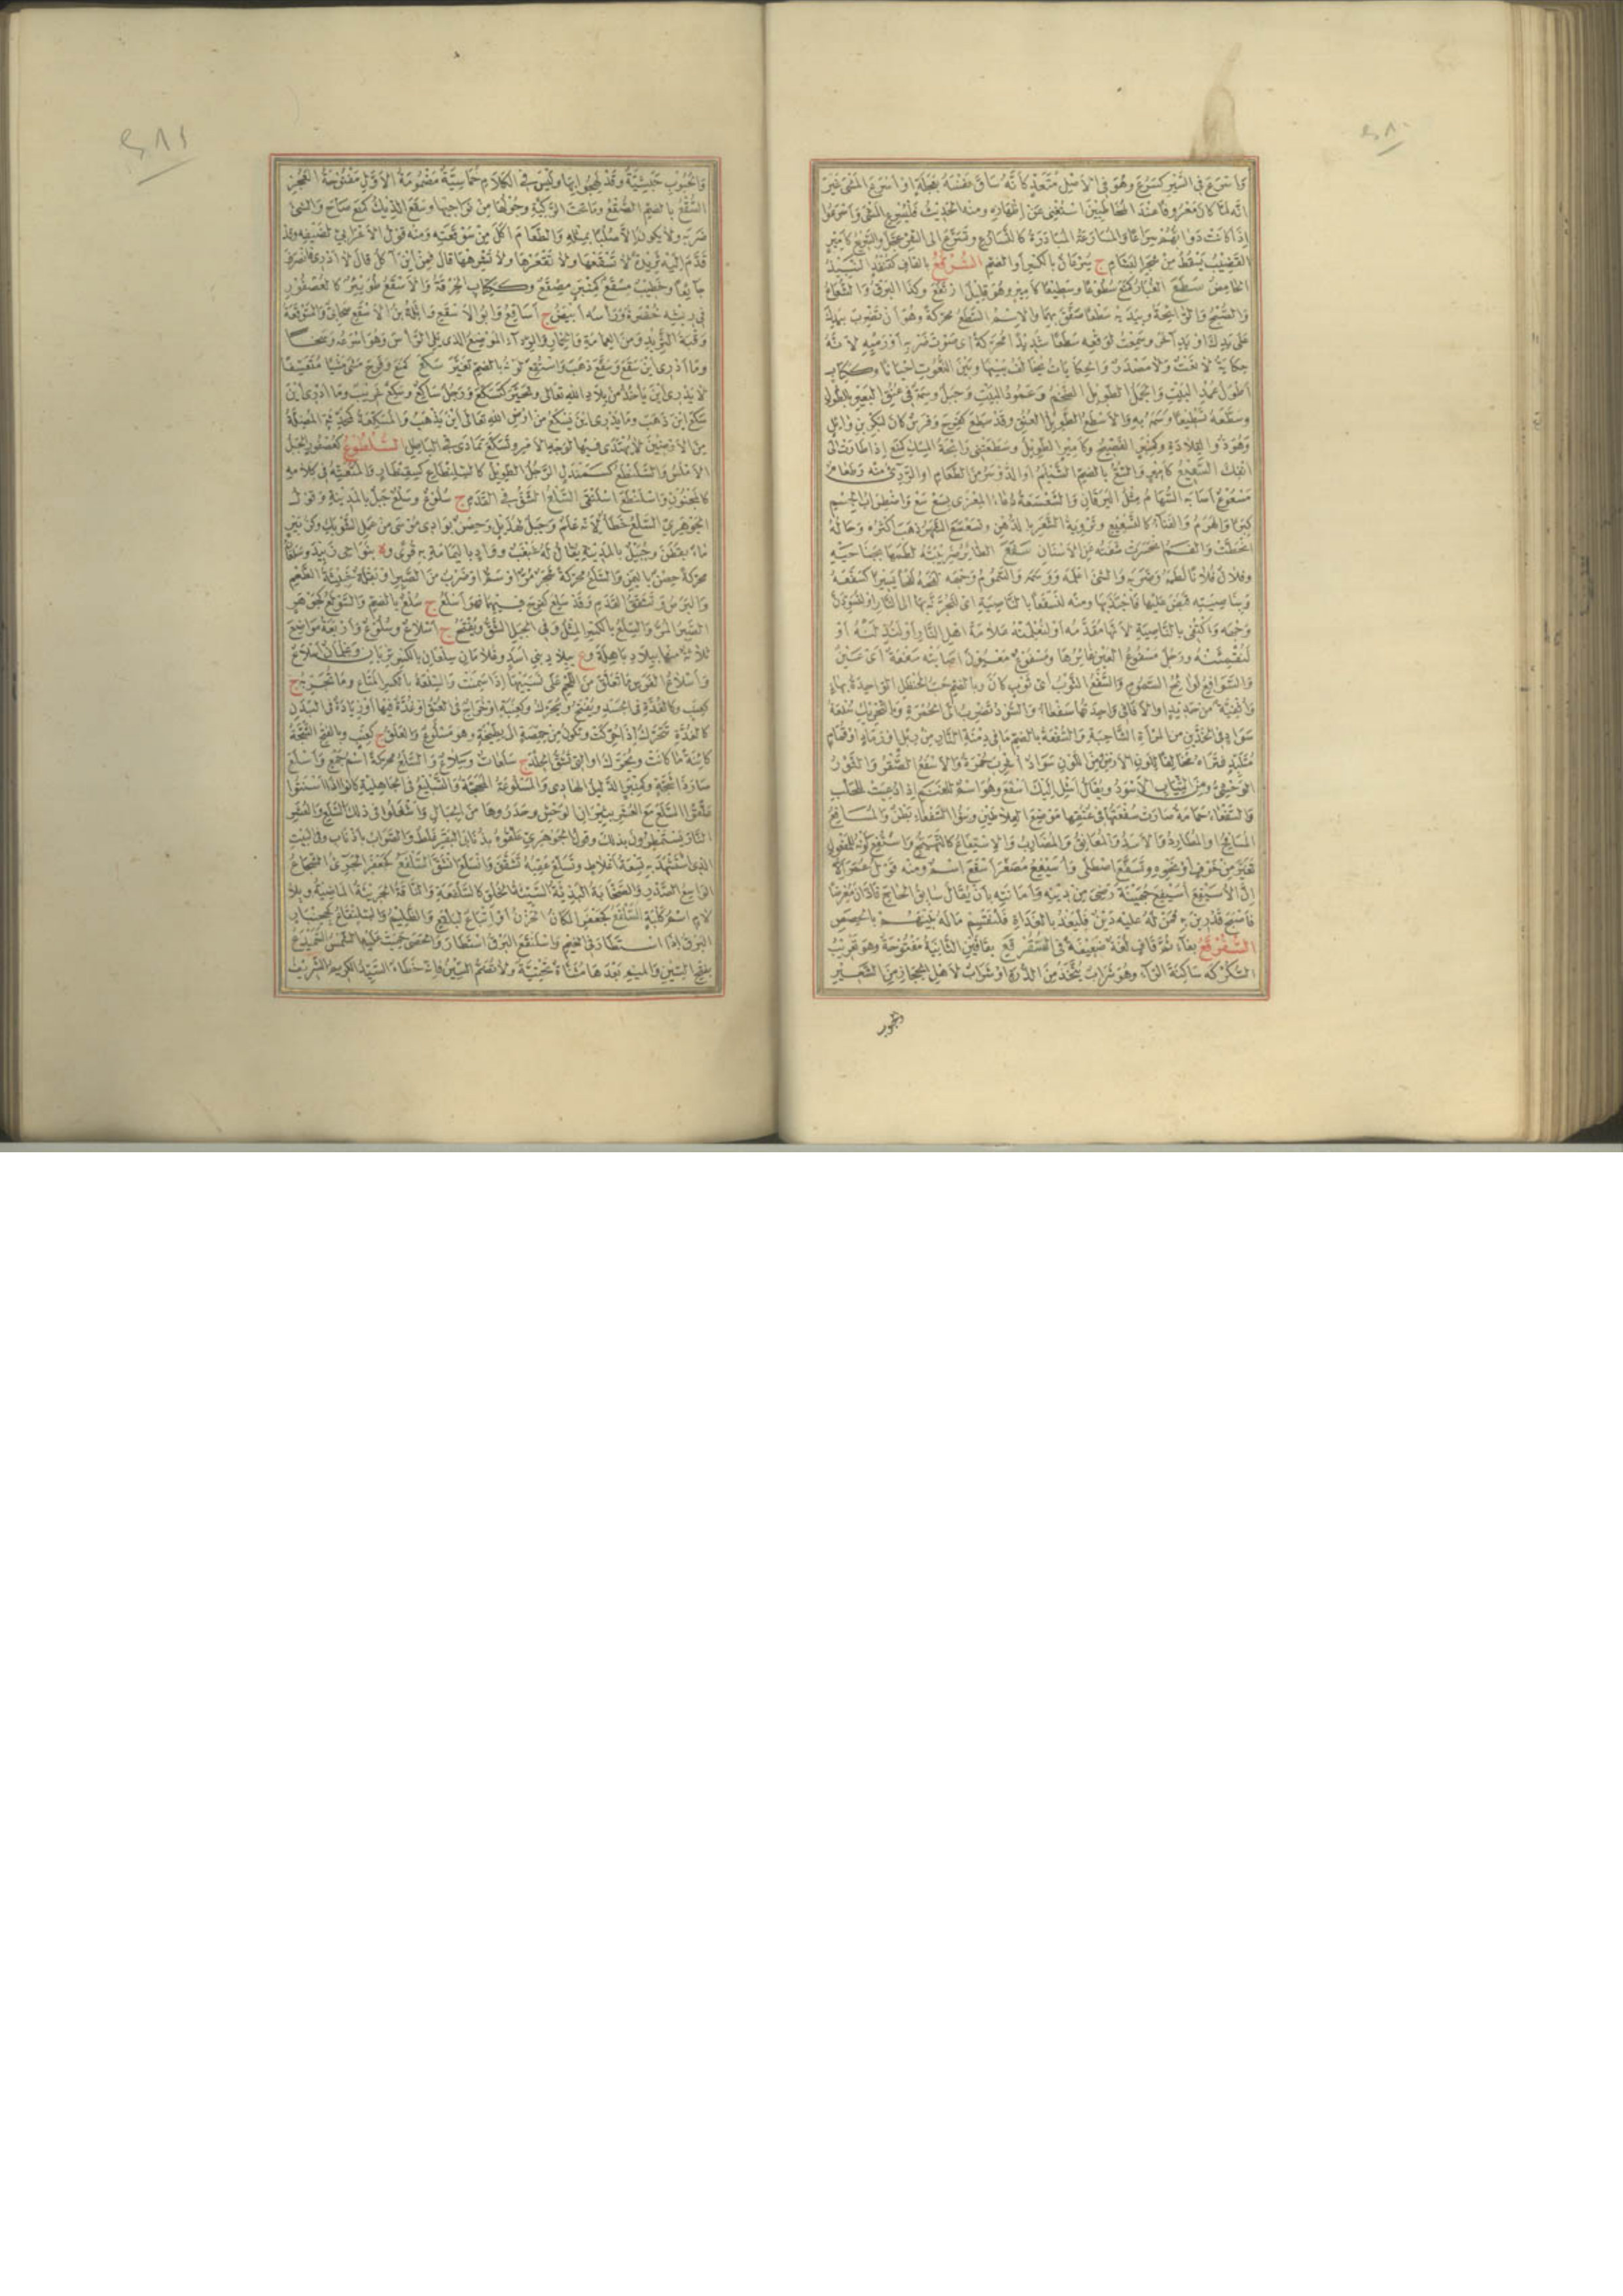 وأسرع في السير كسرع وهو في الأصل متعد كأنه ساق نفسه بعجلة أو أسرع المشي غير
أنه لما كان معروفا عند المخاطبين استغنى عن إظهاره ومنه الحديث فليسرع المشي وأسرعوا
إذا كانت دوابهم سراعا والمسارعة المبادرة كالتسارع وتسرع إلى الشر عجل والسريع كأمير
القضيب يسقط من شجر البشام ج سرعان بالكسر أو الضم السقرقع بالقاف
الحامض سطع الغبار كمنع سطوعا وسطيعا كأمير وهو قليل ارتفع وكذا البرق والشعاع
والصبح والرائحة وبيديه سطعا صفق بهما والاسم السطع محركة وهو أن تضرب بيدك
على يدك أو يد آخر وسمعت لوقعه سطعا شديدا محركة أي صوت ضربه أو رميه لأنه
حكاية لا نعت ولا مصدر والحكايات يخالف بينها وبين النعوت أحيانا وككتاب
أطول عمد البيت والجمل الطويل الضخم وعمود البيت وجبل وسمة في عنق البعير بالطول
وسطعه تسطيعا وسمه به والأسطع الطويل العنق وقد سطع كفرح وفرس كان لبكر بن وائل
وهو ذو القلادة وكمنبر الفصيح وكأمير الطويل وسطعتني رائحة المسك كمنع إذا طارت إلى
أنفك السعيع كأمير والسع بالضم الشيلم أو الدوسر من الطعام أو الرديء منه وطعام
مسعوع أصابه السهام مثل اليرقان والسعسعة دعاء المعزى بسع سع واضطراب الجسم
كبرا والهرم والفناء كالتسعسع وتروية الشعر بالدهن وتسعسع الشهر ذهب أكثره وحاله
انحطت والفم انحسرت شفته عن الأسنان سفع الطائر ضريبته لطمها بجناحيه
وفلان فلانا لطمه وضربه والشيء أعلمه ووسمه والسموم وجهه لفحه لفحا يسيرا كسفعه
وبناصيته قبض عليها فاجتذبها ومنه لنسفعا بالناصية أي لنجرنه بها إلى النار أو لنسودن
وجهه واكتفى بالناصية لأنها مقدمه أو لنعلمنه علامة أهل النار أو لنذلنه أو
لنقمئنه ورجل مسفوع العين غائرها ومسفوع معيون أصابته سفعة أي عين
والسوافع لوافح السموم والسفع الثوب أي ثوب كان وبالضم حب الحنظل الواحدة بهاء
وأثفية من حديد أو الأثافي واحدتها سفعاء والسود تضرب إلى الحمرة وبالتحريك سفعة
سواد في الخدين من المرأة الشاحبة والسفعة بالضم ما في دمنة الدار من زبل أو رماد أو قمام
متلبد فتراه مخالفا للون الأرض ومن اللون سواد أشرب حمرة والأسفع الصقر والثور
الوحشي ومن الثياب الأسود ويقال أشل إليك أسفع وهو اسم للغنم إذا دعيت للحلب
والسفعاء حمامة صارت سفعتها في عنقها موضع العلاطين وبنو السفعاء بطن والمسافع
المسافح والمطارد والأسد والمعانق والمضارب والاستفاع كالتهيج واستفع لونه للمفعول
تغير من خوف أو نحوه وتسفع اصطلى وأسيفع مصغر أسفع اسم ومنه قول عمر ألا
إن الأسيفع أسيفع جهينة رضي من دينه وأمانته بأن يقال سابق الحاج فادان معرضا
فأصبح قد رين به فمن كان له عليه دين فليغد بالغداة فلنقسم ماله بينهم بالحصص
السفرقع بفاء ثم قاف لغة ضعيفة في السقرقع بقافين الثانية مفتوحة وهو تعريب
السكركه ساكنة الراء وهو شراب يتخذ من الذرة أو شراب لأهل الحجاز من الشعير
والحبوب
والحبوب حبشية وقد لهجوا بها وليس في الكلام خماسية مضمومة الأول مفتوحة العجز
السقع بالضم الصقع وما تحت الركية وحولها من نواحيها وسقع الديك كمنع صاح والشيء
ضربه ولا يكون إلا صلبا بمثله والطعام أكل من سوقعته ومنه قول الأعرابي لضيفه وقد
قدم إليه ثريدة لا تسقعها ولا تقعرها ولا تشرمها قال فمن أين آكل قال لا أدري فانصرف
جائعا وخطيب مسقع كمنبر مصقع وككتاب الخرقة والأسقع طويئر كالعصفور
في ريشه خضرة ورأسه أبيض ج أساقع وأبو الأسقع واثلة بن الأسقع صحابي والسوقعة
وقبة الثريد ومن العمامة والخمار والرداء الموضع الذي يلي الرأس وهو أسرعه وسخا
وما أدري أين سقع وسقع ذهب واستقع لونه بالضم تغير سكع كمنع وفرح مشى مشيا متعسفا
لا يدري أين يأخذ من بلاد الله تعالى وتحير كتسكع ورجل ساكع وسكع غريب وما أدري أين
سكع أين ذهب وما يدري أين يسكع من أرض الله تعالى أين يذهب والمسكعة كمحدثة المضللة
من الأرضين لا يهتدى فيها لوجه الأمر وتسكع تمادى في الباطل السلطوع كعصفور الجبل
الأملس والسلنطع كسمندل الرجل الطويل كالسلنطاع كسقنطار والمتعته في كلامه
كالمجنون واسلنطع اسلنقى السلع الشق في القدم ج سلوع وسلع جبل بالمدينة وقول
الجوهري السلع خطأ لأنه علم وجبل لهذيل وحصن بوادي موسى من عمل الشوبك وكزبير
ماء بقطن وجبيل بالمدينة يقال له عثعث وواد باليمامة به قرى وة بنواحي زبيد وسلعان
محركة حصن باليمن والسلع محركة شجر مر أو سم أو ضرب من الصبر أو بقلة خبيثة الطعم
والبرص وتشقق القدم وقد سلع كفرح فيهما فهو أسلع ج سلع بالضم والسولع كجوهر
الصبر المر والسلع بالكسر المثل وفي الجبل الشق ويفتح ج أسلاع وسلوع وأربعة مواضع
ثلاثة منها ببلاد باهلة وع ببلاد بني أسد وغلامان سلعان بالكسر تربان وغلمان أسلاع
وأسلاع الفرس ما تعلق من اللحم على نسييها إذا سمنت والسلعة بالكسر المتاع وما تجر به ج
كعنب وكالغدة في الجسد ويفتح ويحرك وكعنبة أو خراج في العنق أو غدة فيها أو زيادة في البدن
كالغدة تتحرك إذا حركت وتكون من حمصة إلى بطيخة وهو مسلوع والعلق ج كعنب وبالفتح الشجة
كائنة ما كانت ويحرك أو التي تشق الجلد ج سلعات وسلاع والسلع محركة اسم جمع وأسلع
صار ذا شجة وكمنبر الدليل الهادي والمسلوعة المحجة والتسليع في الجاهلية كانوا إذا أسنتوا
علقوا السلع مع العشر بثيران الوحش وحدروها من الجبال وأشعلوا في ذلك السلع والعشر
النار يستمطرون بذلك وقول الجوهري علقوه بذنابى البقر غلط والصواب بأذناب وفي البيت
الذي استشهد به تسعة أغلاط وتسلع عقبه تشقق وانسلع انشق السلفع كجعفر الجريء الشجاع
الواسع الصدر والصخابة البذيئة السيئة الخلق كالسلفعة والناقة الجريئة الماضية وبلا
لام اسم كلبة السلقع كجعفر المكان الحزن أو إتباع لبلقع والظليم والسلنقاع كجحنبار
البرق إذا استطار في الغيم واسلنقع البرق استطار والحصى حميت عليه الشمس السميدع
بفتح السين والميم بعدها مثناة تحتية ولا تضم السين فإنه خطأ السيد الكريم الشريف